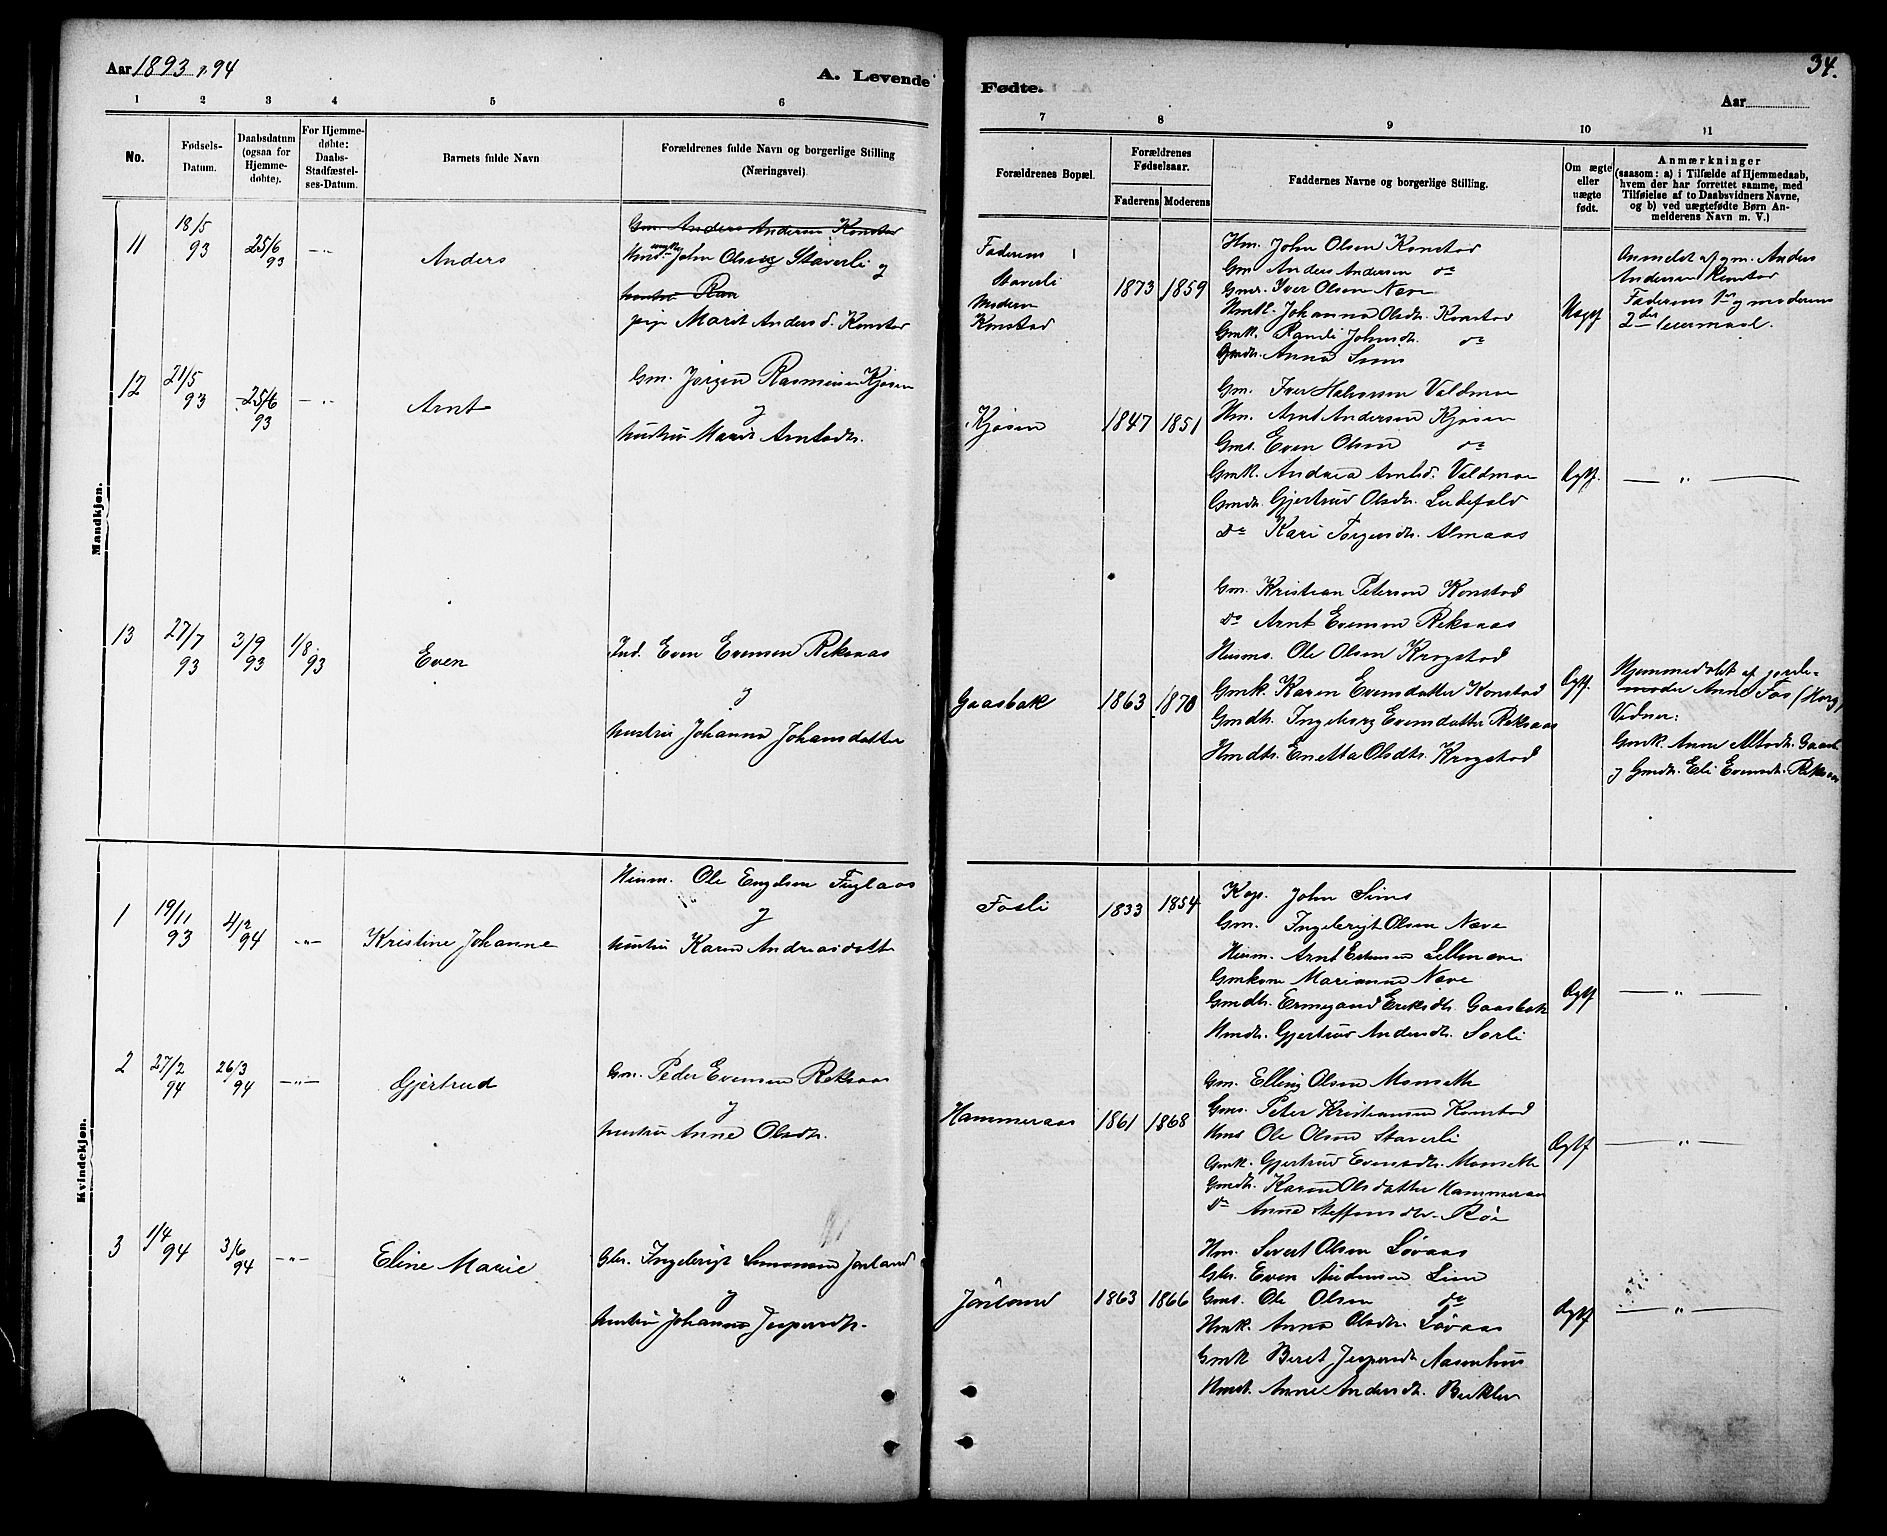 Aar 1893 & 94
A. Levende
Fødte.
34.
Aar
1 2 3 4 5 6 7 8 9 10 11
No.
Fødsels-
Datum.
Daabsdatum
(ogsaa for
Hjemme-
døbte).
For Hjemme-
døbte:
Daabs-
Stadfæstel-
ses-Datum.
Barnets fulde Navn
Forældrenes fulde Navn og borgerlige Stilling
(Næringsvei)
Forældrenes Bopæl.
Forældrenes
Fødselsaar.
Faderens Moderens
Faddernes Navne og borgerlige Stilling.
Om ægte
eller
uægte
født.
Anmærkninger
(saasom: a) i Tilfælde af Hjemmedaab,
hvem der har forrettet samme, med
Tilføielse af to Daabsvidners Navne,
og b) ved uægtefødte Børn An-
melderens Navn m. V.)
Mandkjøn.
11
18/5
93
25/6
93
— " —
Anders
Gm. Anders Andersen Konstad
ungk. John Olsen Staverli og
hustru Ran
pige Marit Andersd. Konstad
Faderens
Staverli
Moderens
Konstad
1873 1859
Hm. John Olsen Konstad
Gm. Anders Andersen do
Gms. Iver Olsen Næve
Hmk. Johanna Olsdtr. Konstad
Gmk. Randi Johnsdtr. do
Gmdtr. Anna Sims
Uægtf
Anmeldt af gm. Anders
Andersen Konstad
Faderens 1ste og moderens
2det leiermaal.
12
21/5
93
25/6
93
— " —
Arnt
Gm. Jørgen Rasmussen Kjøsen
og
hustru Marit Arntsdtr.
Kjøsen
1847 1851
Gm. Iver Halvorsen Valdmoe
Hm. Arnt Andersen Kjøsen
Gms. Even Olsen do
Gmk. Andrea Arntsd. Valdmoe
Gmdtr. Gjertrud Olsdtr.
Do Kari Jørgensdtr. Almaas
Ægtf.
— " —
13
27/7
93
3/9
93
1/8
93
Even
Ind. Even Evensen Reksaas
og
hustru Johanna Johansdatter
Gaasbak
1863 1870
Gm. Kristian Petersen Konstad
Do Arnt Evensen Reksaas
Husms. Ole Olsen Krogstad
Gmk. Karen Evensdatter Konstad
Gmdtr. Ingeborg Evensdatter Reksaas
Hmdtr. Enetta Olsdtr. Krogstad
Ægtf.
Hjemmedøbt af jorde-
moder Anne Fos (Horg)
Vidner:
Gmk. Anne Gaasb.
og Gmdtr. Eli Evensdtr. Reksaas
Kvindekjøn.
1
19/11
93
4/2
94
— " —
Kristine Johanne
Husm. Ole Engelsen Fuglaas
og
hustru Karen Andreasdatt
Fosli
1833 1854
Kop. John Sims
Gm. Ingebrigt Olsen Næve
Husm. Arnt Estensen
Gmkone Marianne Næve
Gmdtr. Ermegaard Eriksdtr. Gaasbak
Hmdtr. Gjertrud Andersdtr. Sørli
Ægtf
— " —
2
27/2
94
26/3
94
— " —
Gjertrud
Gm. Peder Evensen Reksaas
og
hustru Anne Olsdtr.
Hammeraas
1861 1868
Gm. Elling Olsen Monseth
Gms. Peter Kristiansen Konstad
Hms Ole Olsen Staverli
Gmk. Gjertrud Evensdtr. Monseth
Gmdtr. Karen Olsdatter Hammeraas
Do Anne Steffensdtr. Røe
Ægtf
— " —
3
1/4
94
3/6
94
— " —
Eline Marie
Gbr. Ingebrigt Simonsen Jonland
og
hustru Johanna Jespersdtr.
Jonland
1863 1866
Hm. Sivert Olsen Løvaas
Gbr. Even Andersen Lien
Gms. Ole Olsen do
Hmk. Anna Olsdtr. Løvaas
Gmk Beret Jespersdtr Aasenhus
Hmd. Anne Andersdtr.
Ægtf
— " —